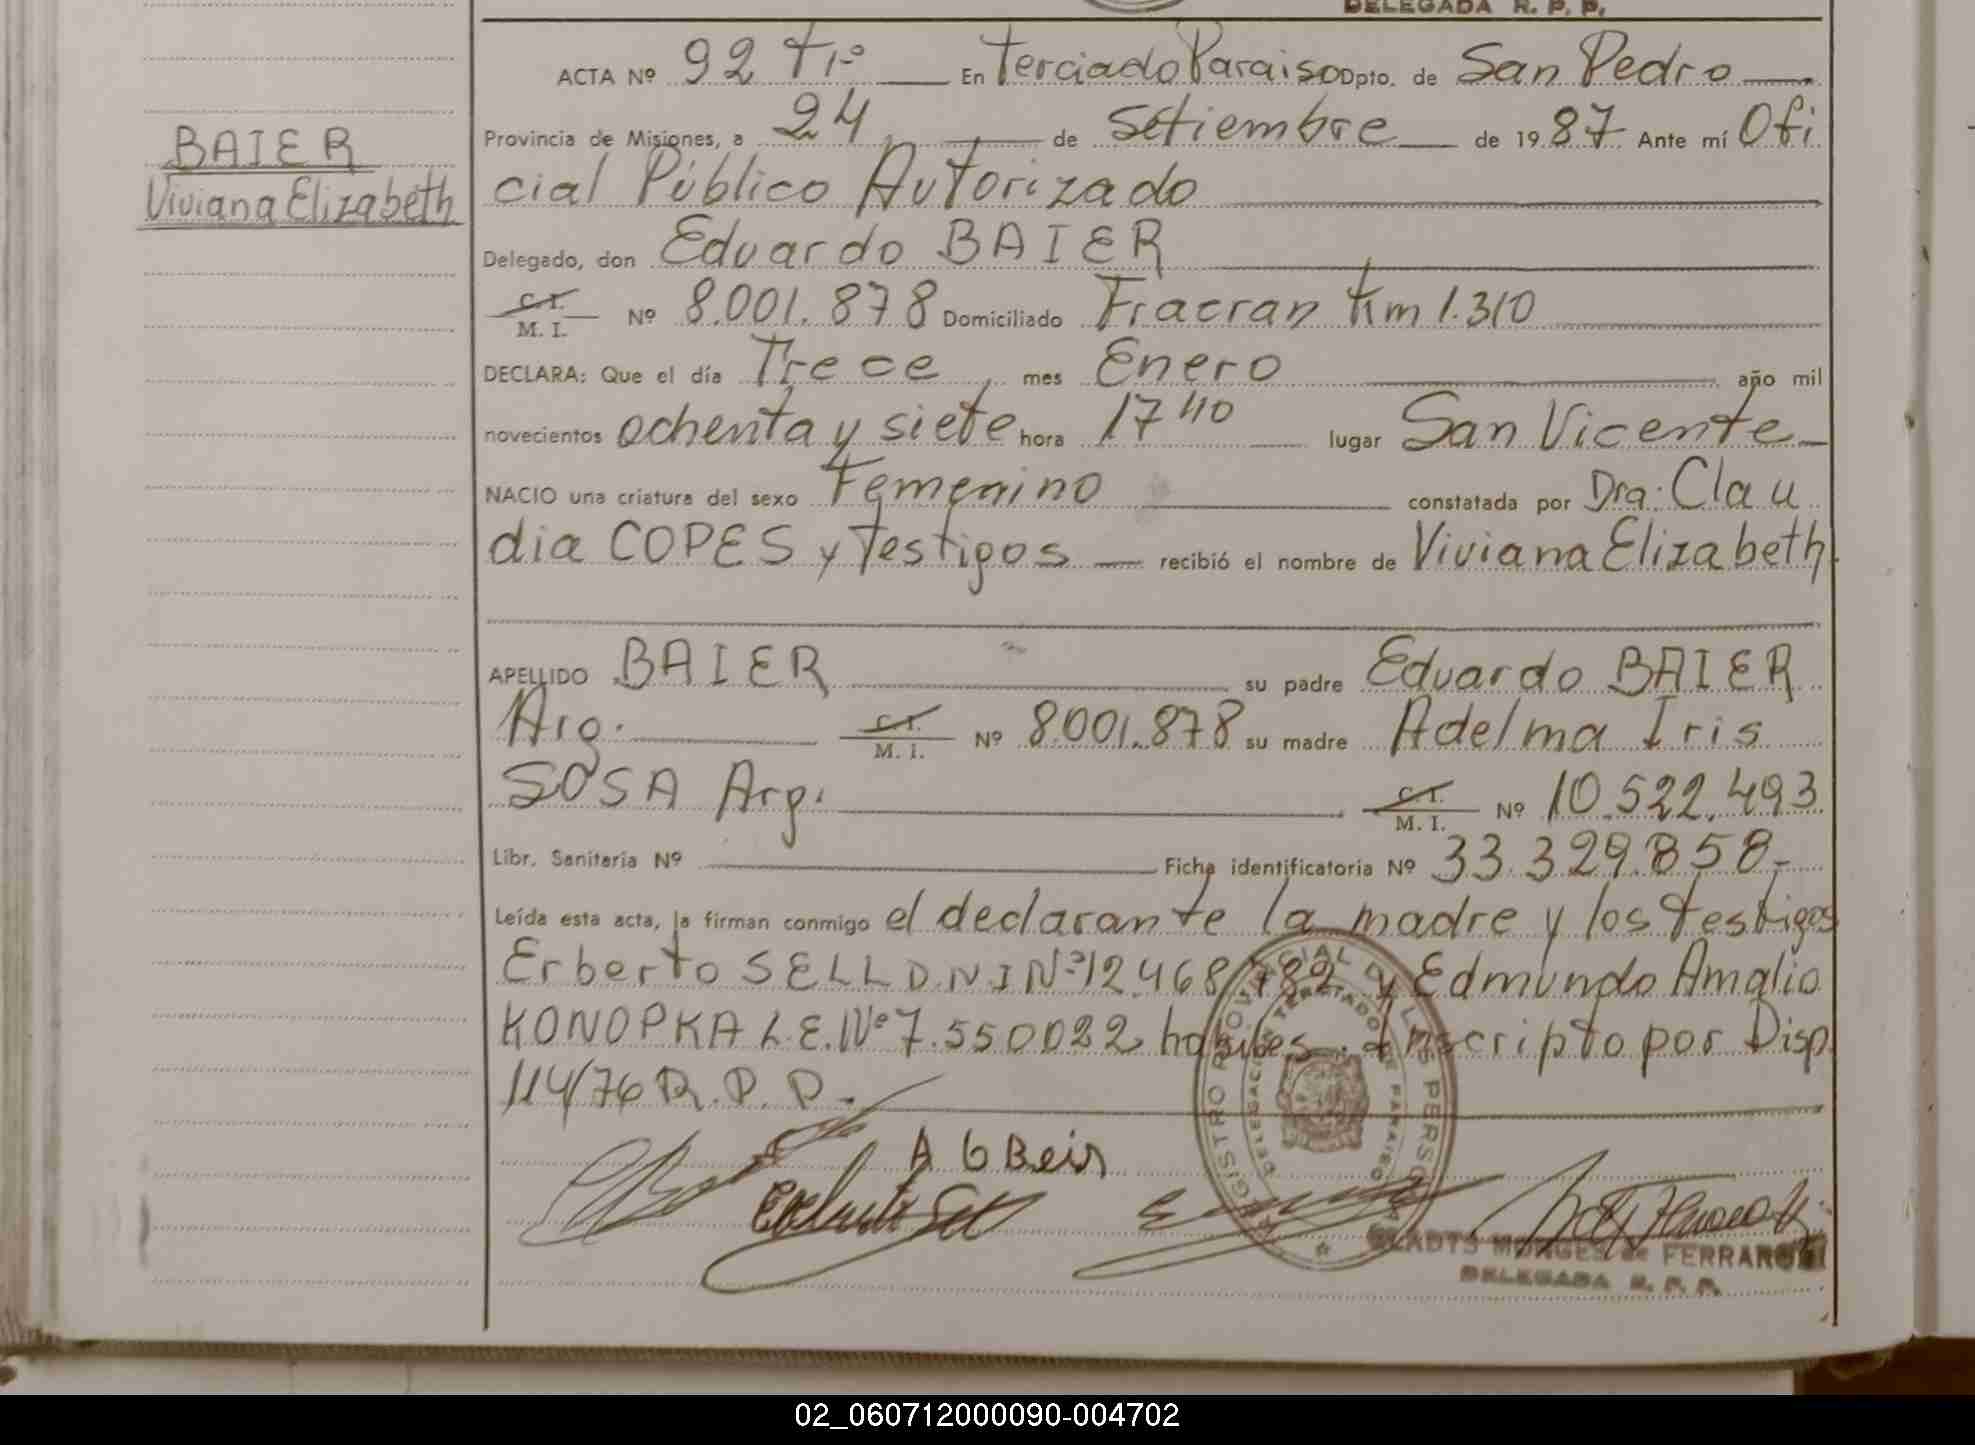 DELEGADA R. P. P.
ACTA Nº 92 T1º En Terciado Paraiso Dpto. de San Pedro
Provincia de Misiones, a 24 de Setiembre de 1987 Ante mí Ofi
BAIER
Viviana Elizabeth
cial Público Autorizado
Delegado, don Eduardo BAIER
C. I.
M. I. Nº 8.001.878 Domiciliado Fracran Km 1.310
DECLARA: Que el día Trece mes Enero año mil
novecientos ochenta y siete hora 17 40 lugar San Vicente
NACIO una criatura del sexo Femenino constatada por Dra. Clau
dia COPES y Testigos recibió el nombre de Viviana Elizabeth
APELLIDO BAIER su padre Eduardo BAIER
Arg. C. I. M. I. Nº 8.001.878 su madre Adelma Iris
SOSA Arg. C. I. M. I. Nº 10.522.493
Libr. Sanitaria Nº Ficha identificatoria Nº 33.329.858.-
Leída esta acta, la firman conmigo el declarante la madre y los testigos
Erberto SELL D.N.I Nº 12.468.782 y Edmundo Amalio
KONOPKA L.E. Nº 7.550022 habiles. Inscripto por Disp.
114/76 R.P.P.-
REGISTRO PROVINCIAL DE LAS PERSONAS
DELEGACION TERCIADO PARAISO
GLADYS MONGES de FERRARO
DELEGADA R. P. P.
02_060712000090-004702